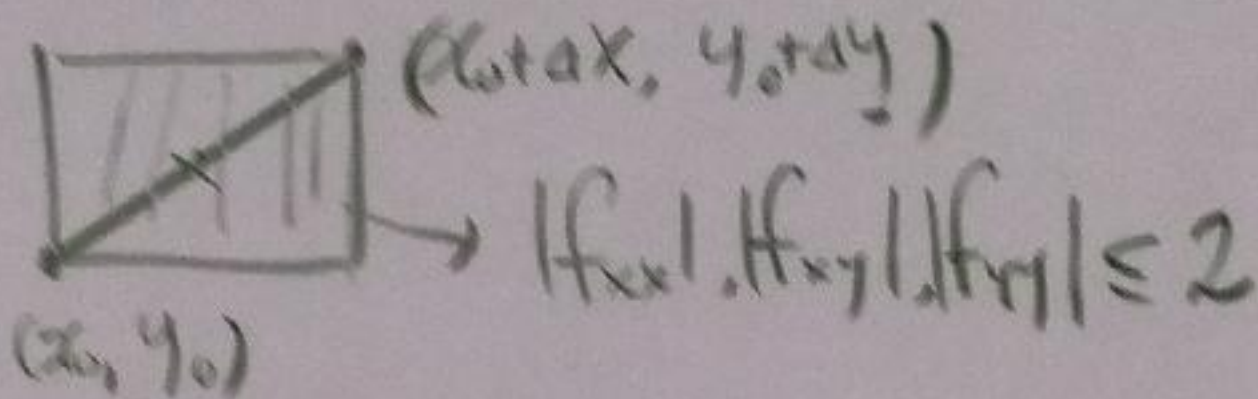 (x₀+Δx, y₀+Δy)
|fxx|, |fxy|, |fyy| ≤ 2
(x₀, y₀)